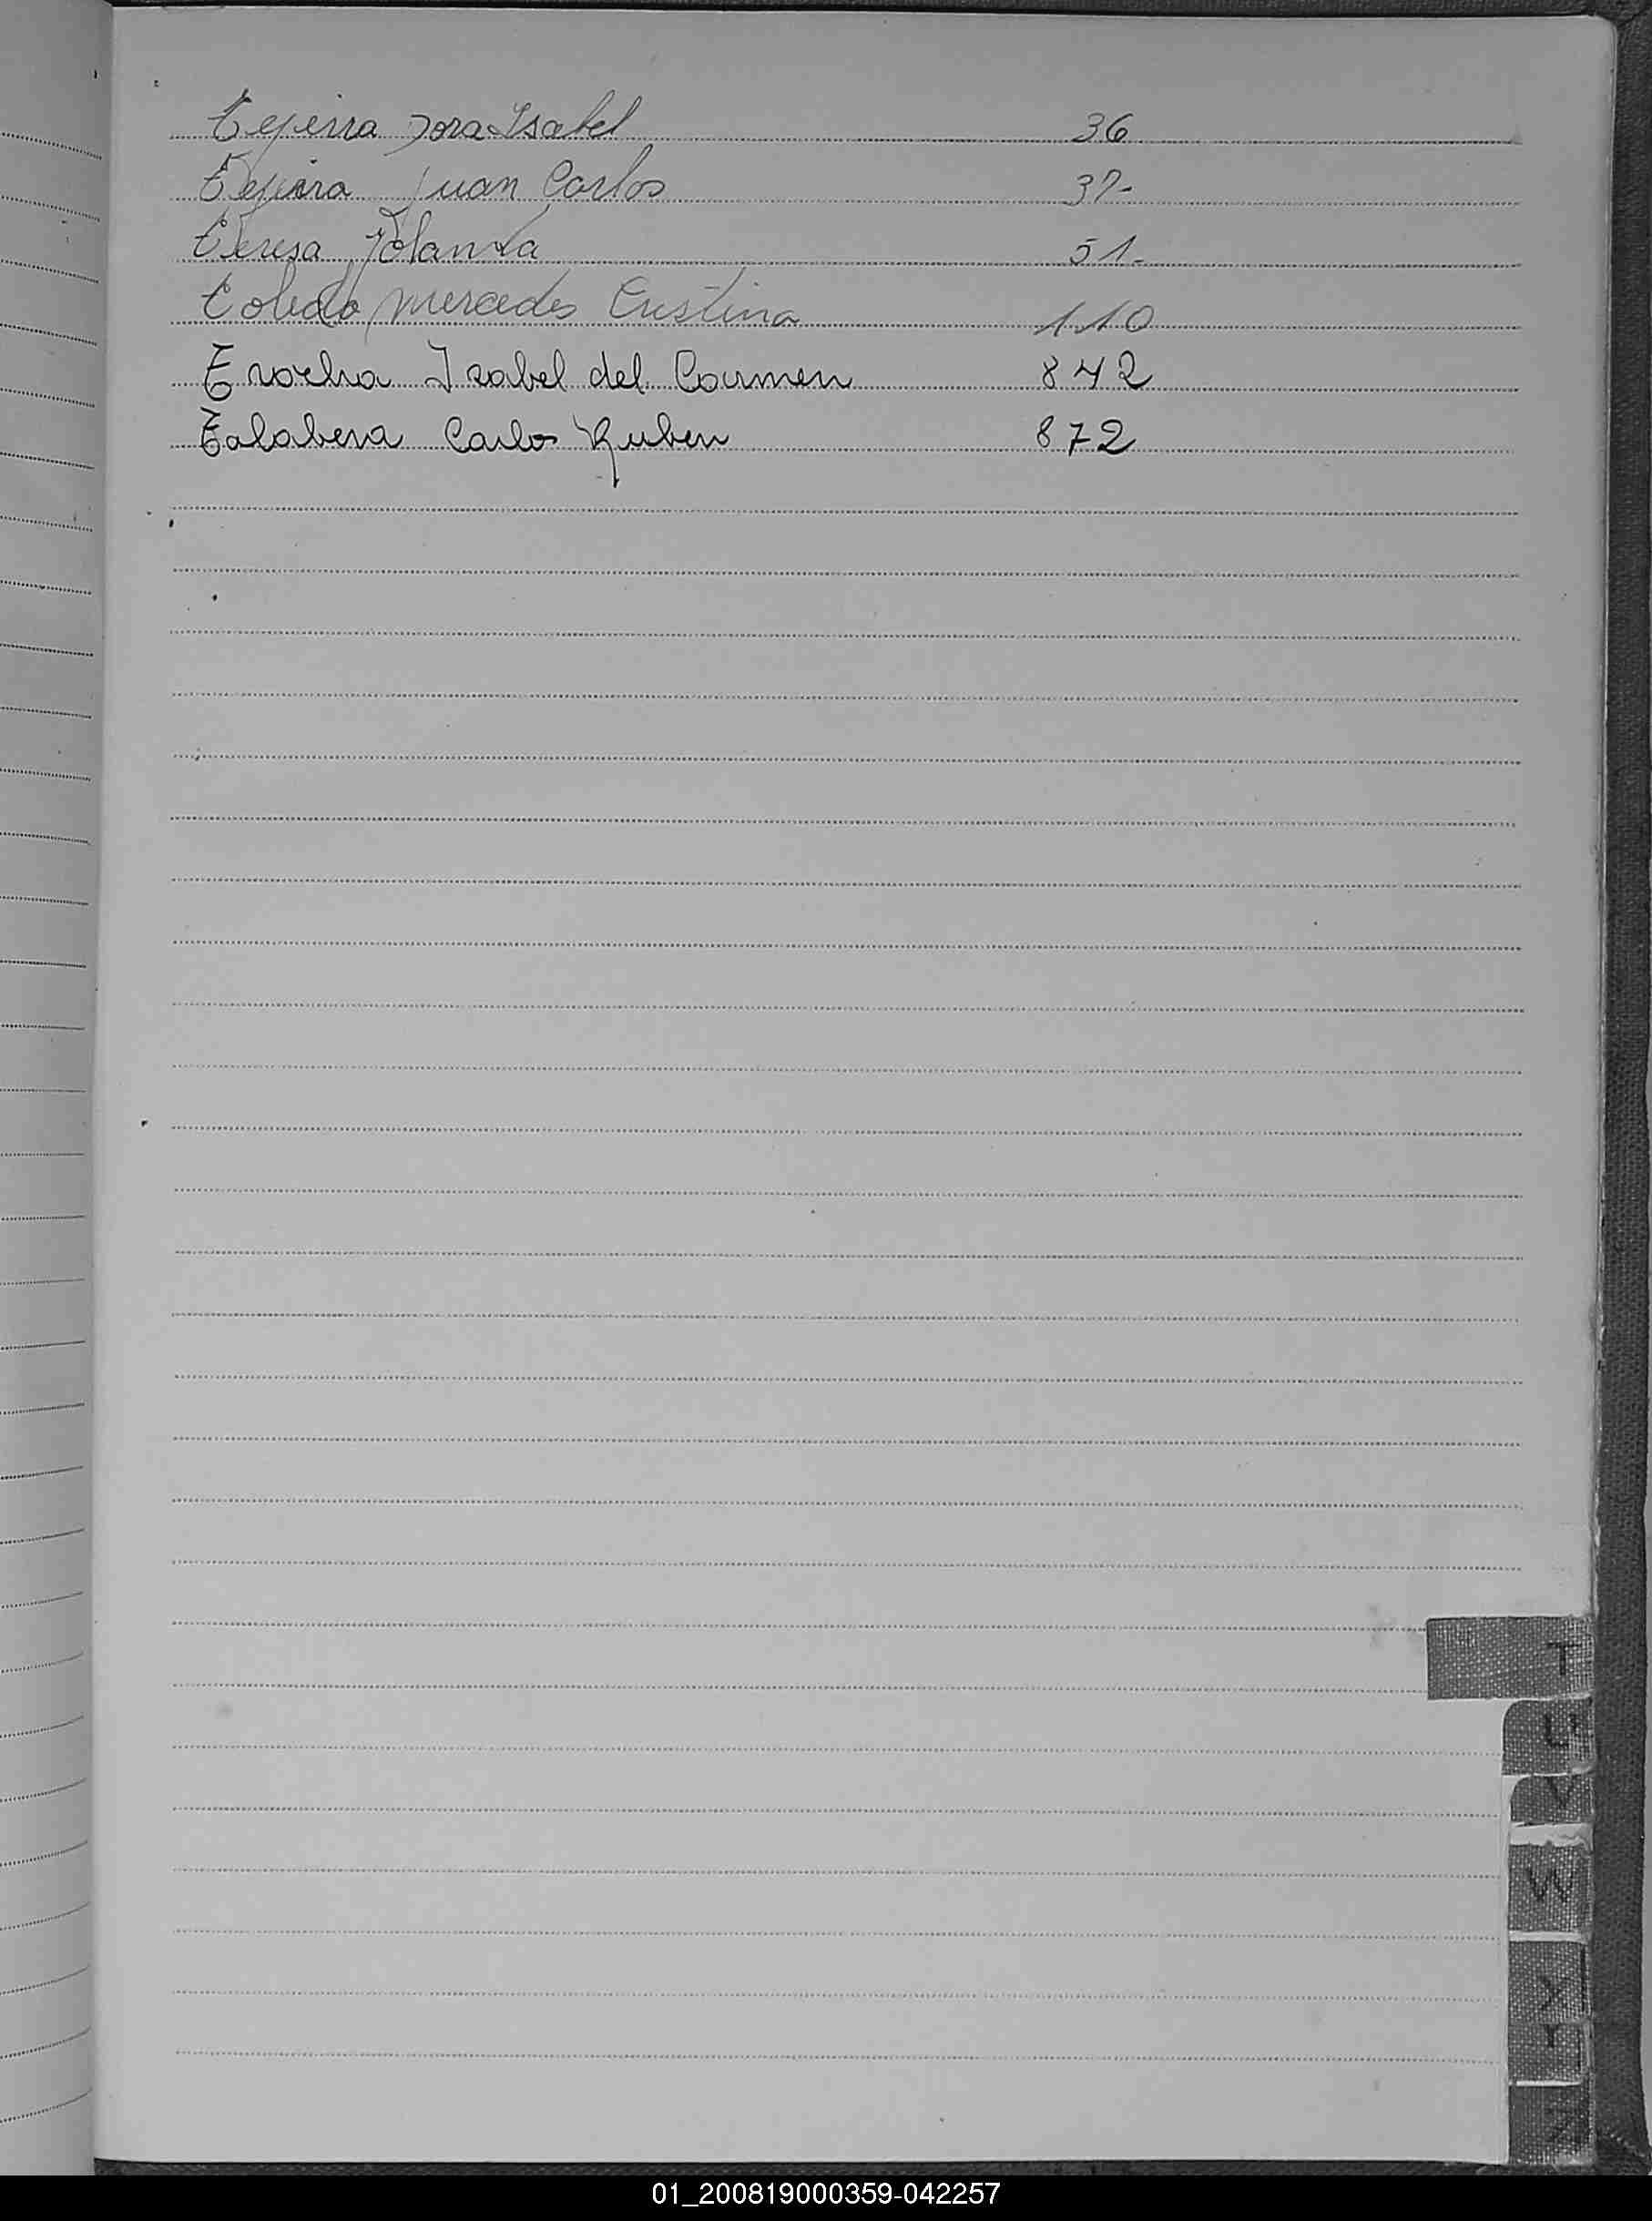 Tejeira Dora Isabel 36
Tejeira Juan Carlos 37-
Teresa Yolanda 51-
Toledo Mercedes Cristina 110
Isabel del Carmen 842
Talabera Carlos Ruben 872
T
U
V
W
X
Y
Z
01_200819000359-042257